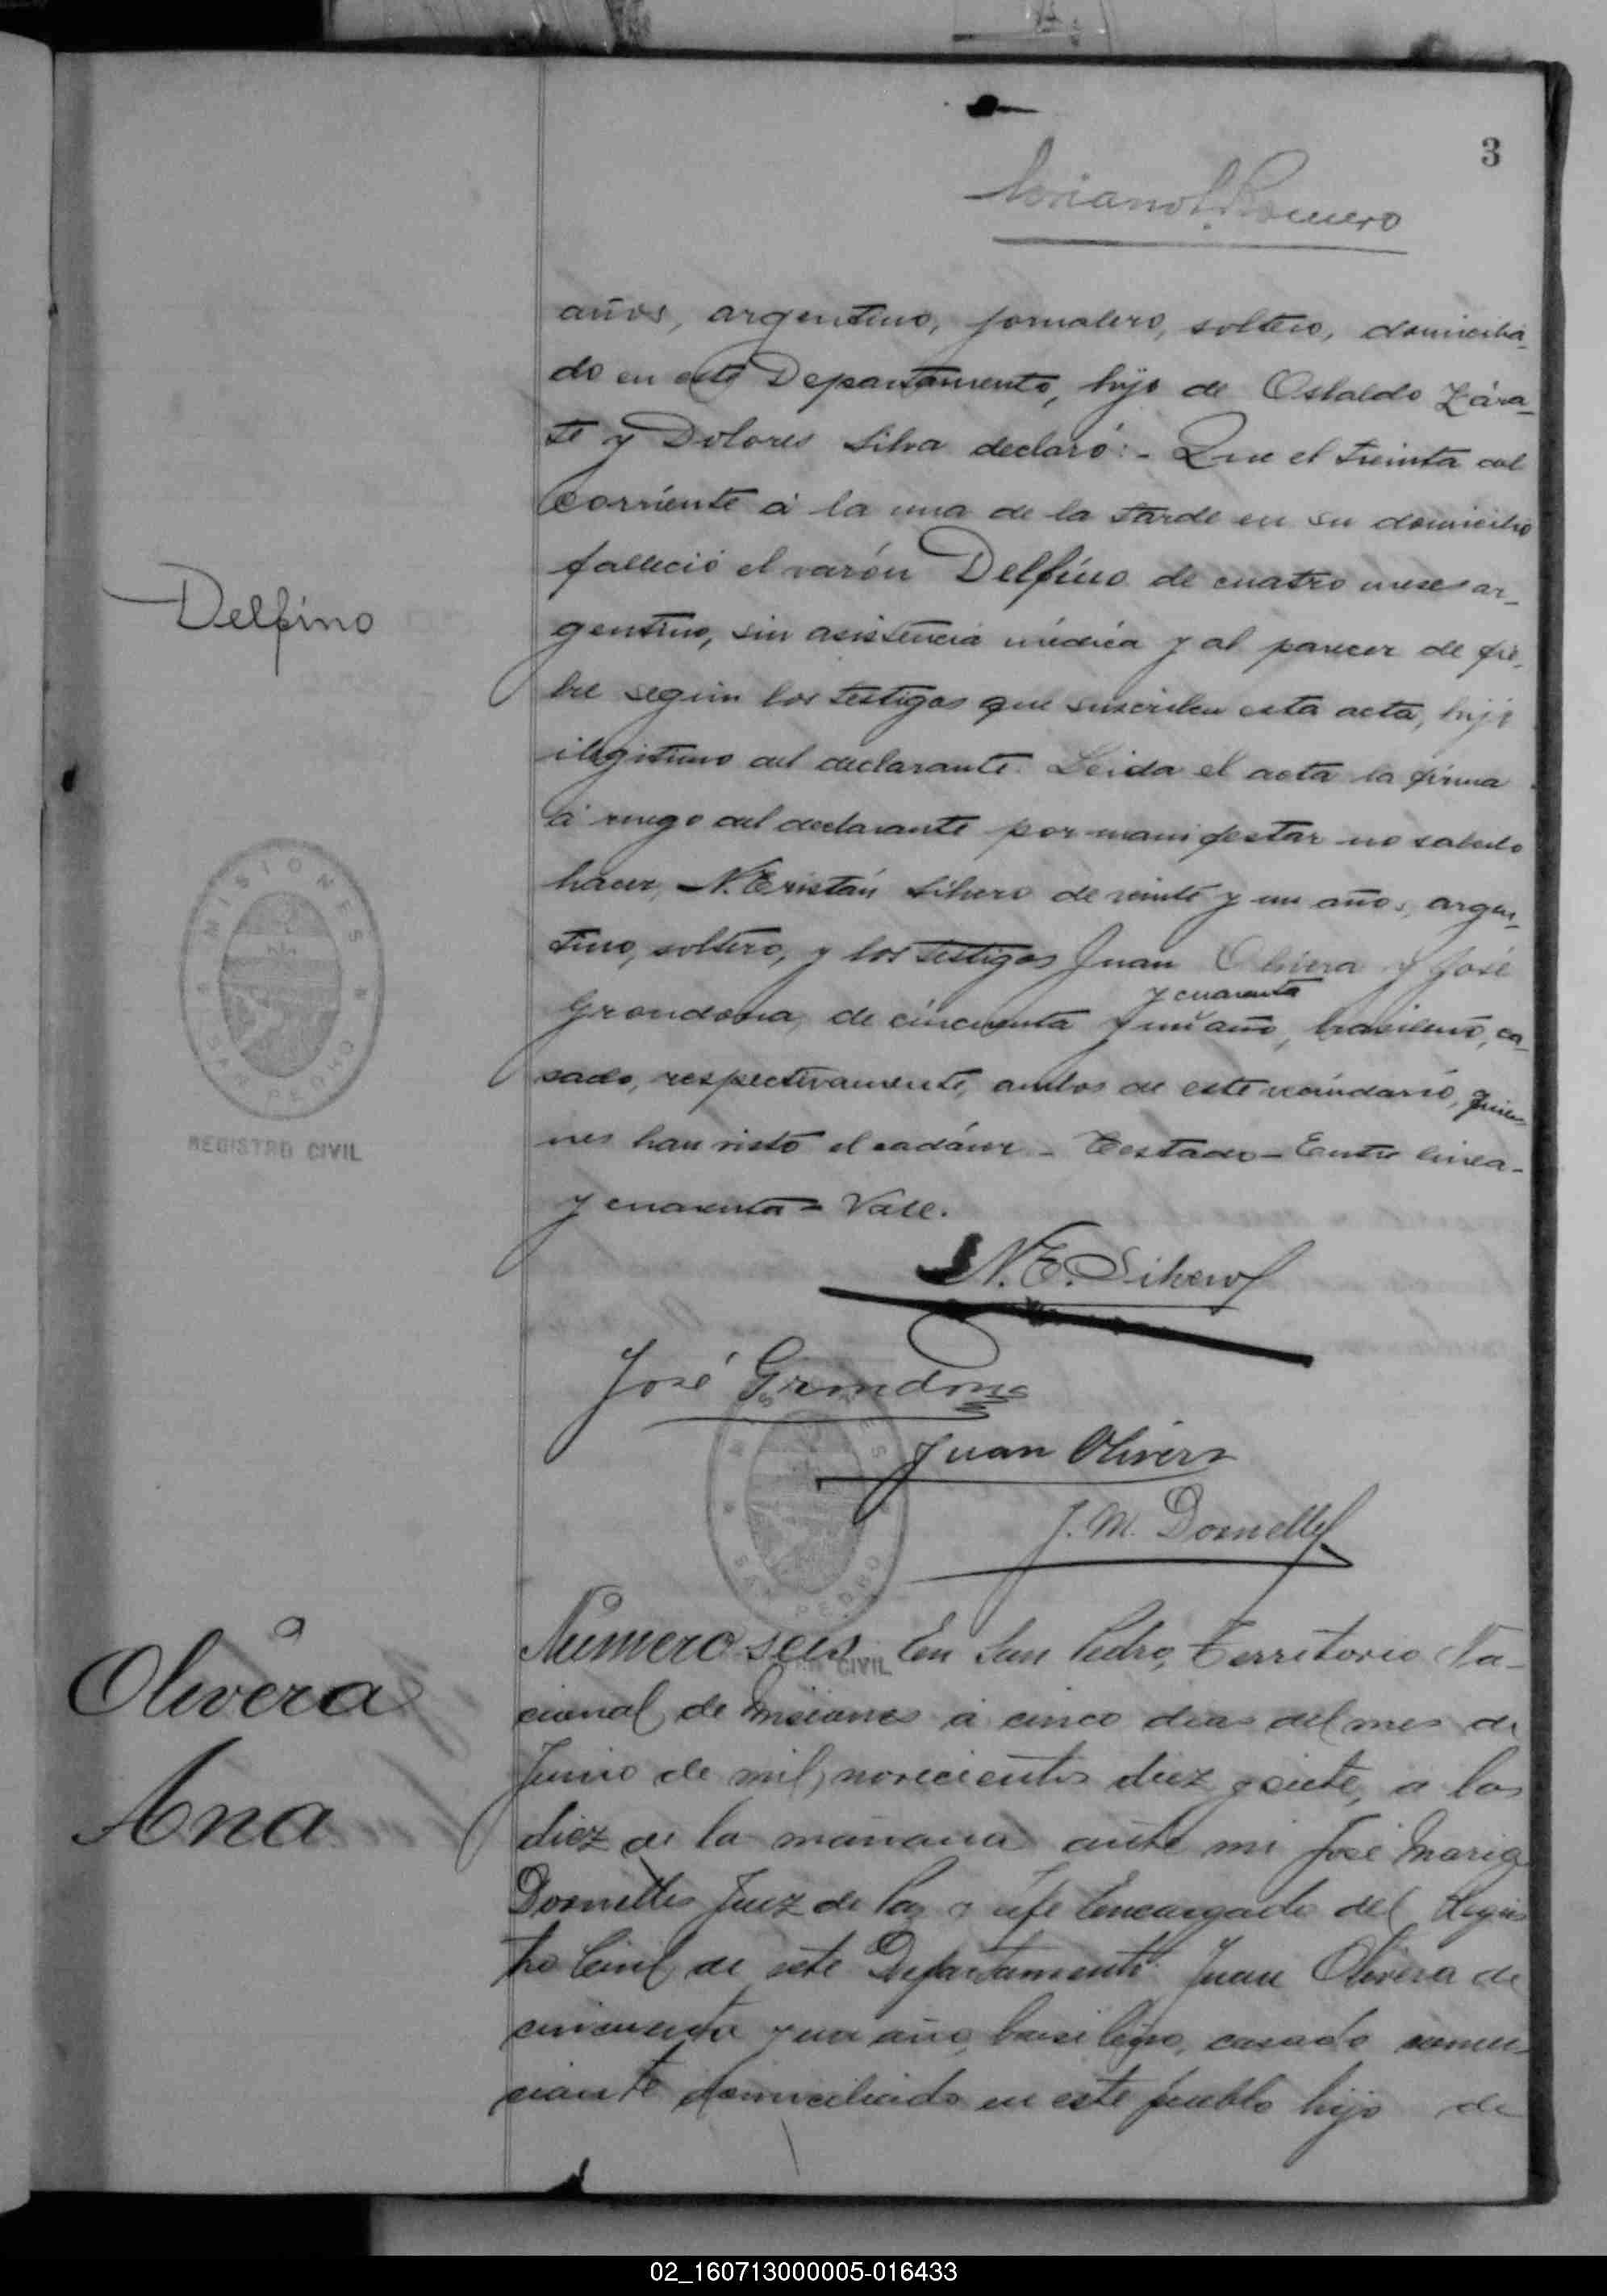 3
Romero
años, argentino, jornalero, soltero, domicilia-
do en este Departamento, hijo de Osbaldo Zára-
te y Dolores Silva declaró:- Que el treinta del
corriente á la una de la tarde en su domicilio
falleció el varón Delfino de cuatro meses ar-
gentino, sin asistencia médica y al parecer de fie-
bre según los testigos que suscriben esta acta, hijo
ilegitimo del declarante. Leida el acta la firma
á ruego del declarante por manifestar no saberlo
hacer, N. Eristán Silvero de veinte y un años, argen-
tino, soltero, y los testigos Juan Olivera y José
y cuarenta
Grondona, de cincuenta y un año, brasilero, ca-
sado, respectivamente, ambos de este vecindario, quie-
nes han visto el cadáver - Testado - Entre linea-
y cuarenta = Vale.
Delfino
MISIONES
SAN PEDRO
REGISTRO CIVIL
N. E. Silvero
José Grondona
Juan Olivera
J. M. Dornelles
SAN PEDRO
CIVIL
Olivera
Ana
Número seis En San Pedro, Territorio Na-
cional de Misiones á cinco dias del mes de
Junio de mil novecientos diez y siete, a las
diez de la mañana ante mi José Maria
Dornelles Juez de Paz y Jefe Encargado del Regis
tro Civil de este Departamento Juan Olivera de
cincuenta y un año, brasilero, casado comer-
ciante domiciliado en este pueblo hijo de
02_160713000005-016433